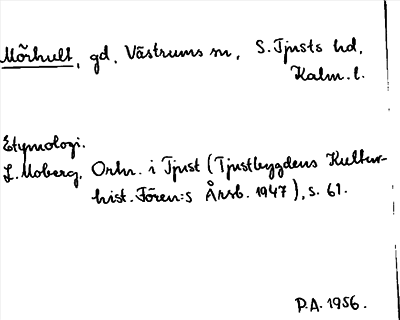 Mörhult, gd, Västrums sn, S. Tjusts hd,
Kalm. l.
Etymologi.
L. Moberg, Ortn. i Tjust (Tjustbygdens Kultur-
hist. Fören:s Årsb. 1947), s. 61.
P.A. 1956.